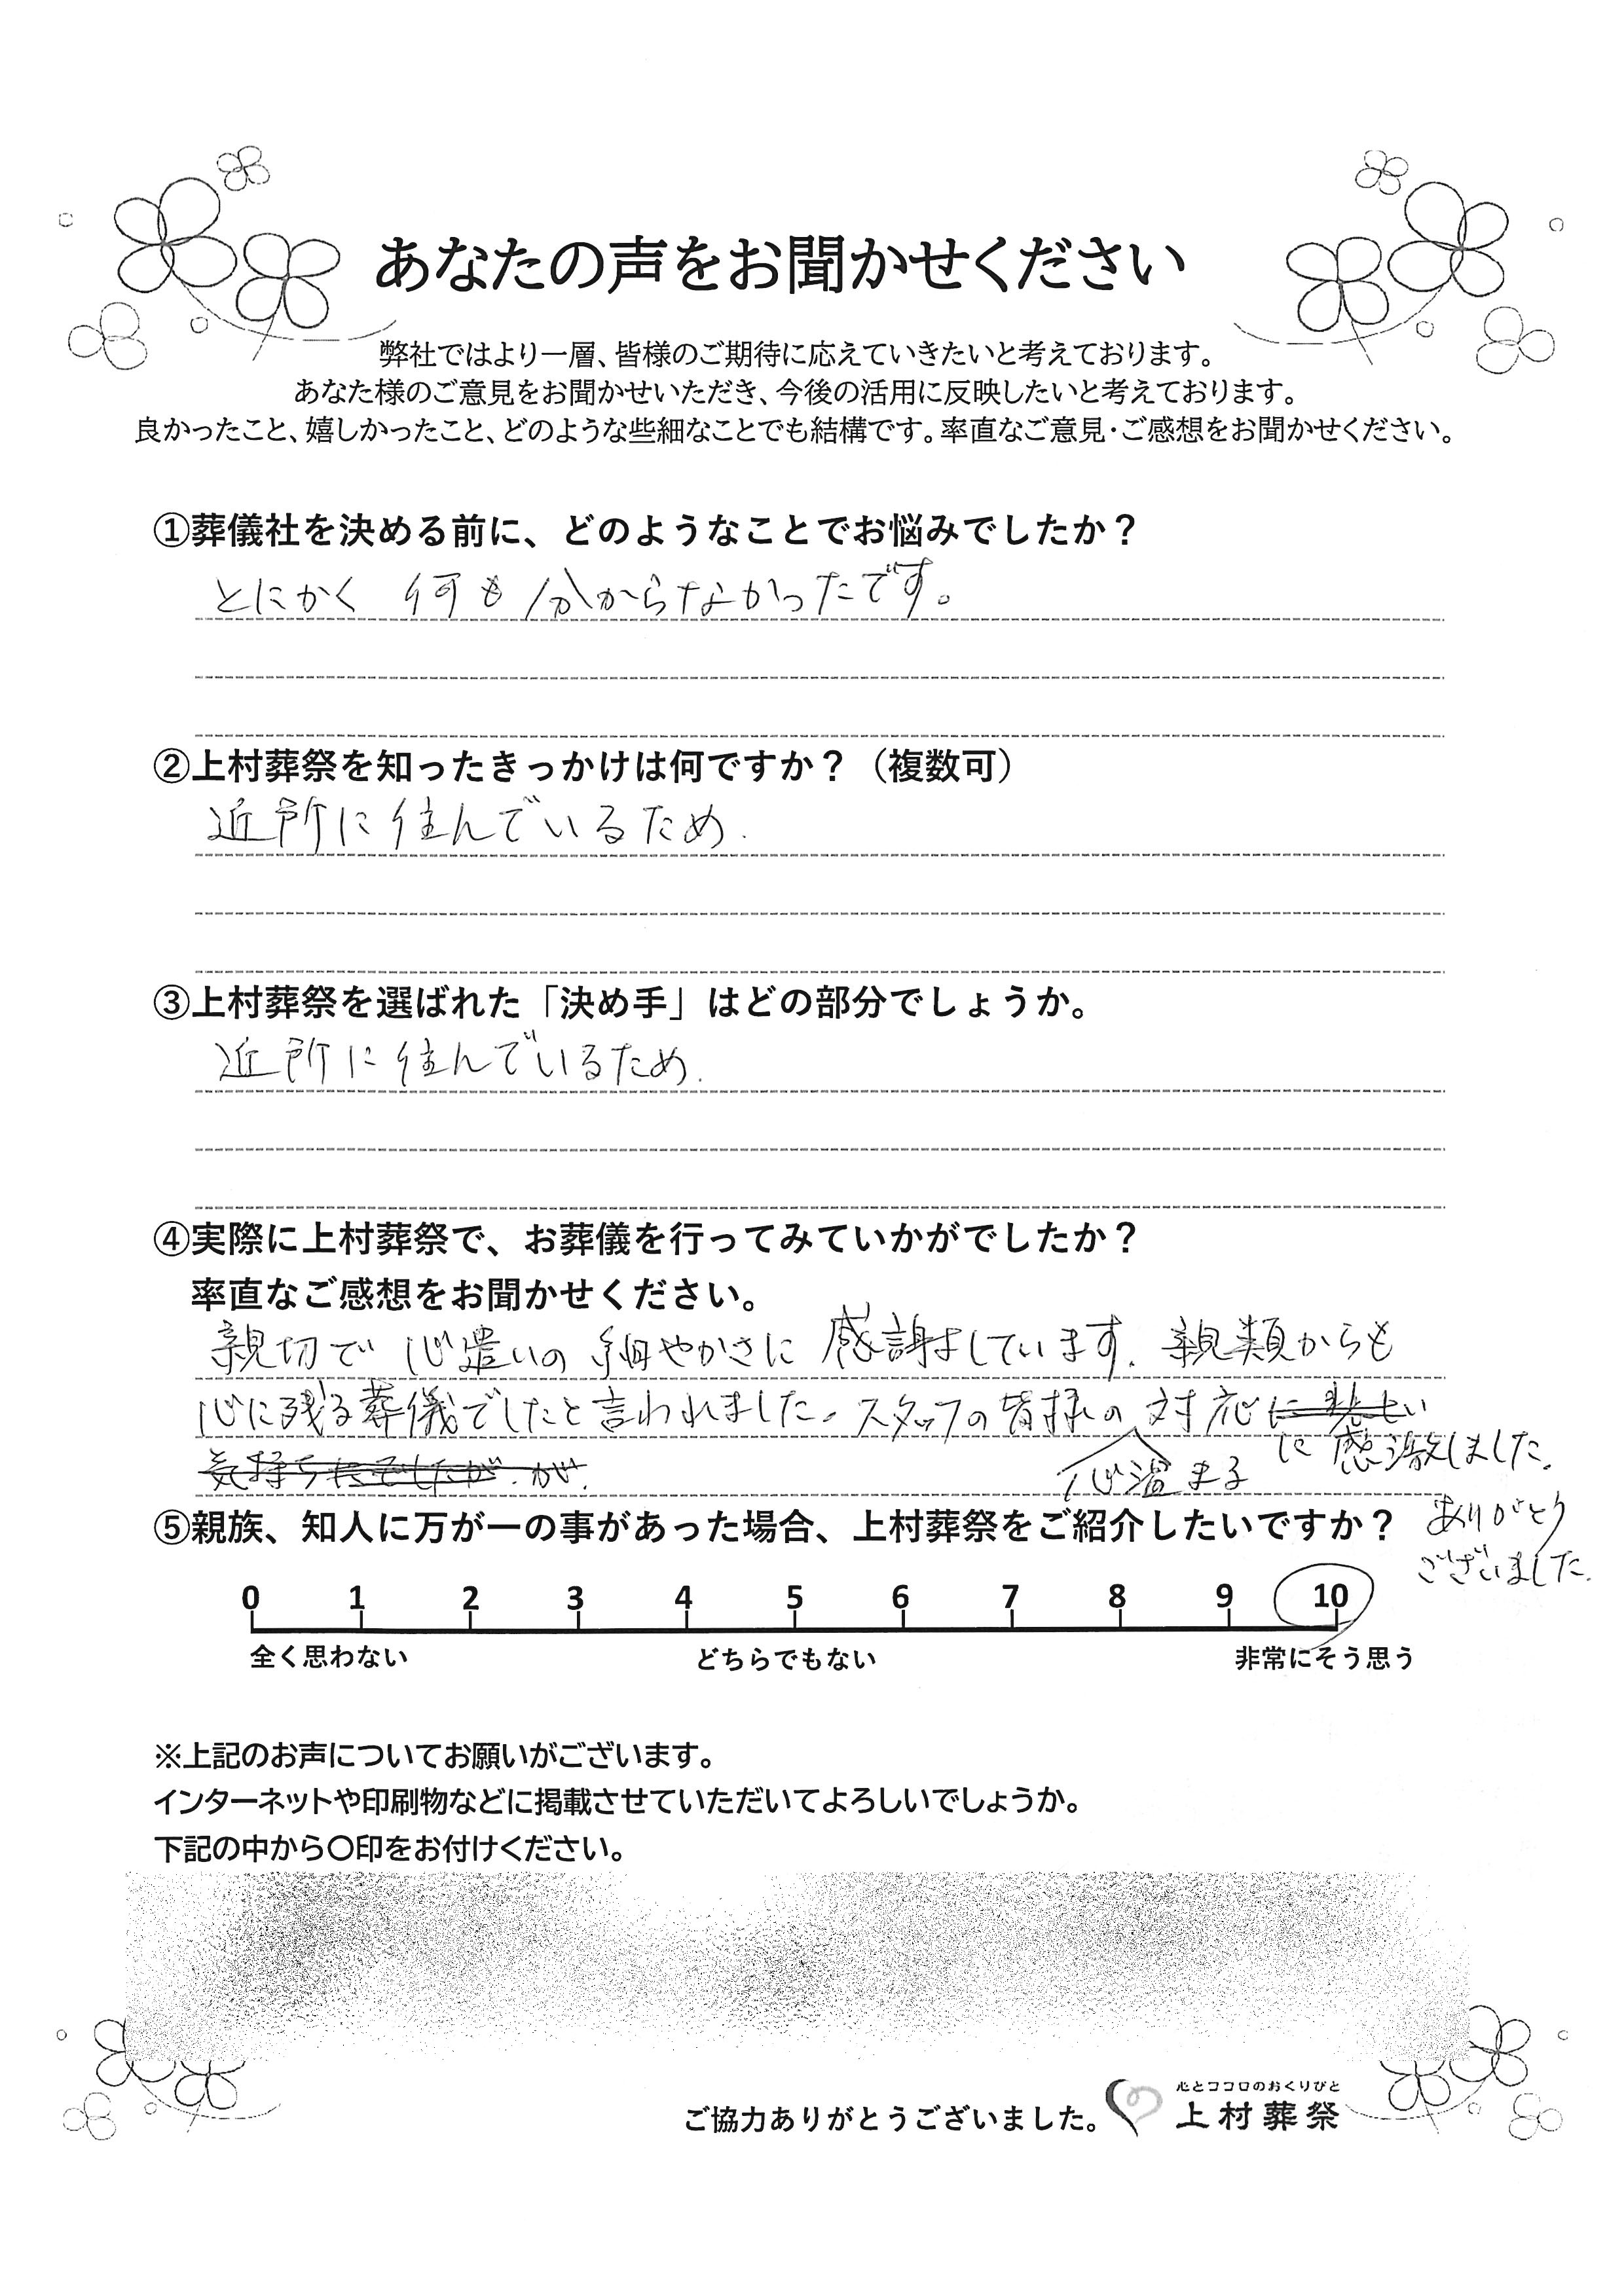 あなたの声をお聞かせください
弊社ではより一層、皆様のご期待に応えていきたいと考えております。
あなた様のご意見をお聞かせいただき、今後の活用に反映したいと考えております。
良かったこと、嬉しかったこと、どのような些細なことでも結構です。率直なご意見・ご感想をお聞かせください。
①葬儀社を決める前に、どのようなことでお悩みでしたか？
とにかく 何も分からなかったです。
②上村葬祭を知ったきっかけは何ですか？（複数可）
近所に住んでいるため.
③上村葬祭を選ばれた「決め手」はどの部分でしょうか。
近所に住んでいるため.
④実際に上村葬祭で、お葬儀を行ってみていかがでしたか？
率直なご感想をお聞かせください。
親切で 心遣いの 細やかさに 感謝しています. 親類からも
心に残る葬儀でしたと言われました。スタッフの皆様の 対応
心温まる
に感激しました.
ありがとう
ございました.
⑤親族、知人に万が一の事があった場合、上村葬祭をご紹介したいですか？
0 1 2 3 4 5 6 7 8 9 10
全く思わない どちらでもない 非常にそう思う
※上記のお声についてお願いがございます。
インターネットや印刷物などに掲載させていただいてよろしいでしょうか。
下記の中から〇印をお付けください。
ご協力ありがとうございました。
心とココロのおくりびと
上村葬祭